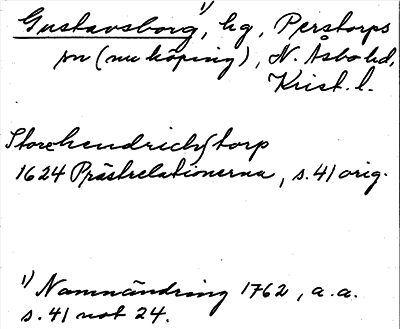 Gustavsborg¹⁾, hg, Perstorps
sn (nu köping), N. Åsbo hd,
Krist. l.
Storehendrichstorp
1624 Prästrelationerna, s. 41 orig.
¹⁾ Namnändring 1762, a.a.
s. 41 not 24.